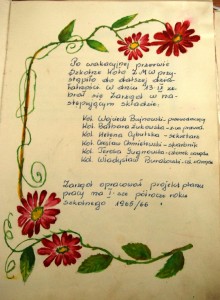 Po wakacyjnej przerwie
Szkolne Koło Z.M.W przy-
stąpiło do dalszej dzia-
łalności. W dniu 23 IX ze-
brał się Zarząd w na-
stępującym składzie:
Kol. Wojciech Bujnowski - przewodniczący
Kol. Barbara Żukowska - z-ca przewod.
Kol. Helena Cybulska - sekretarz
Kol. Czesław Chmielewski - skarbnik
Kol. Teresa Bujnowska - członek zarządu
Kol. Władysław
Zarząd opracował projekt planu
pracy na I-sze półrocze roku
szkolnego 1965/66